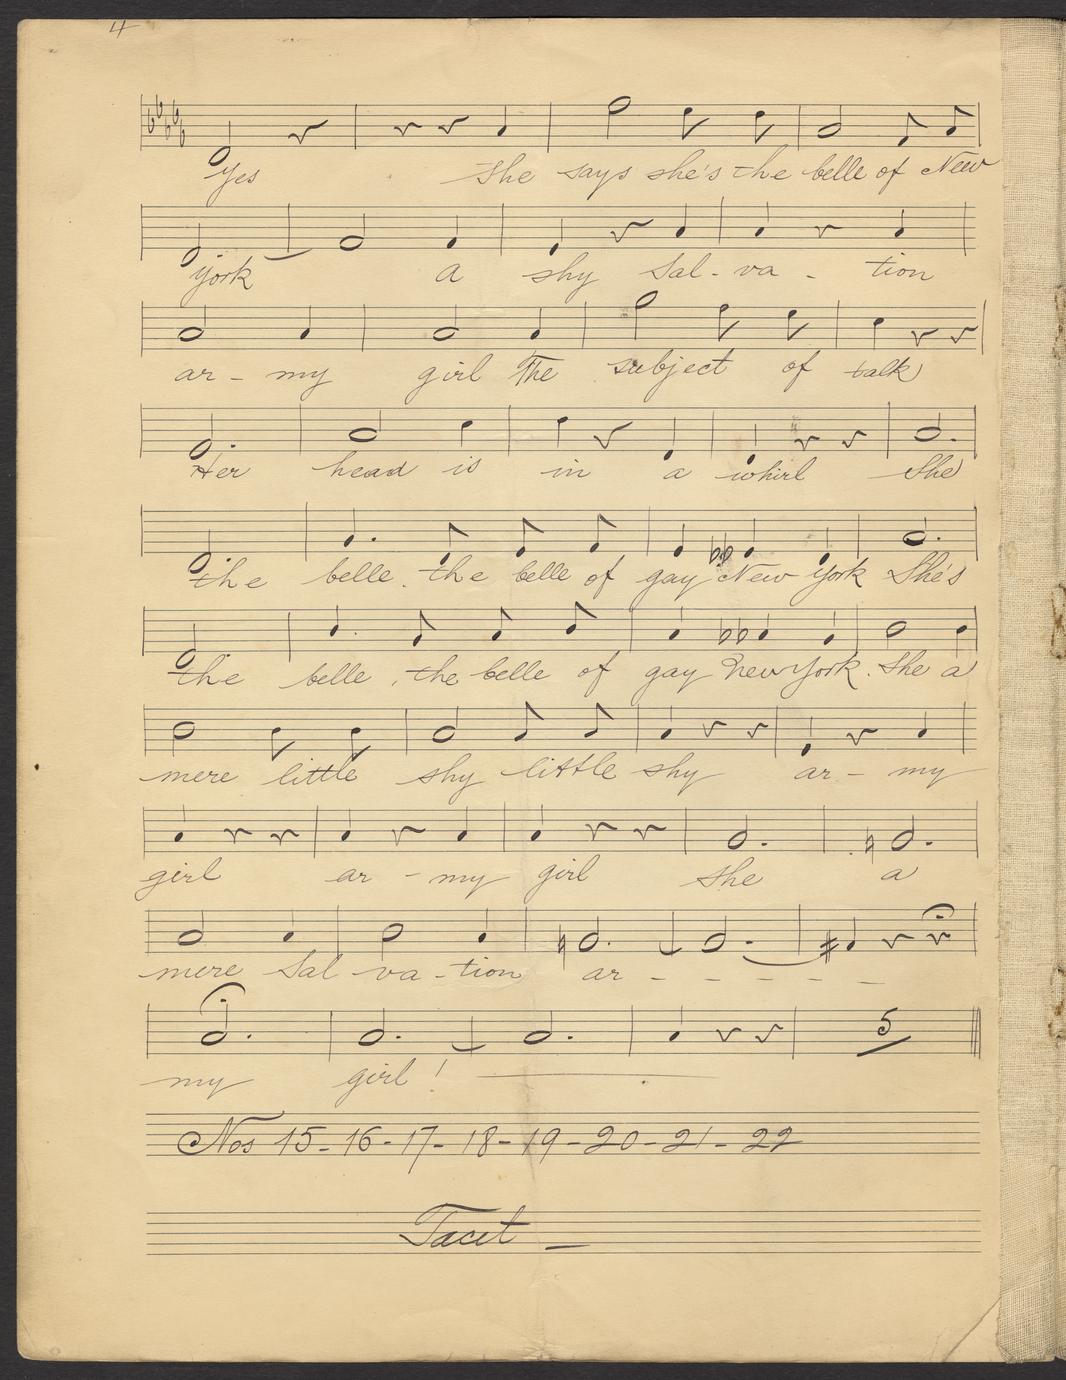 4
Yes She says she's the belle of New
york a shy Sal - va - tion
ar - my girl The subject of talk
Her head is in a whirl She
the belle. the belle of gay New York She's
the belle, the belle of gay New York. She a
mere little shy little shy ar - my
girl ar - my girl she a
mere Sal - va - tion ar - - - - -
my girl! 5
Nos 15 - 16 - 17 - 18 - 19 - 20 - 21 - 22
Tacet _